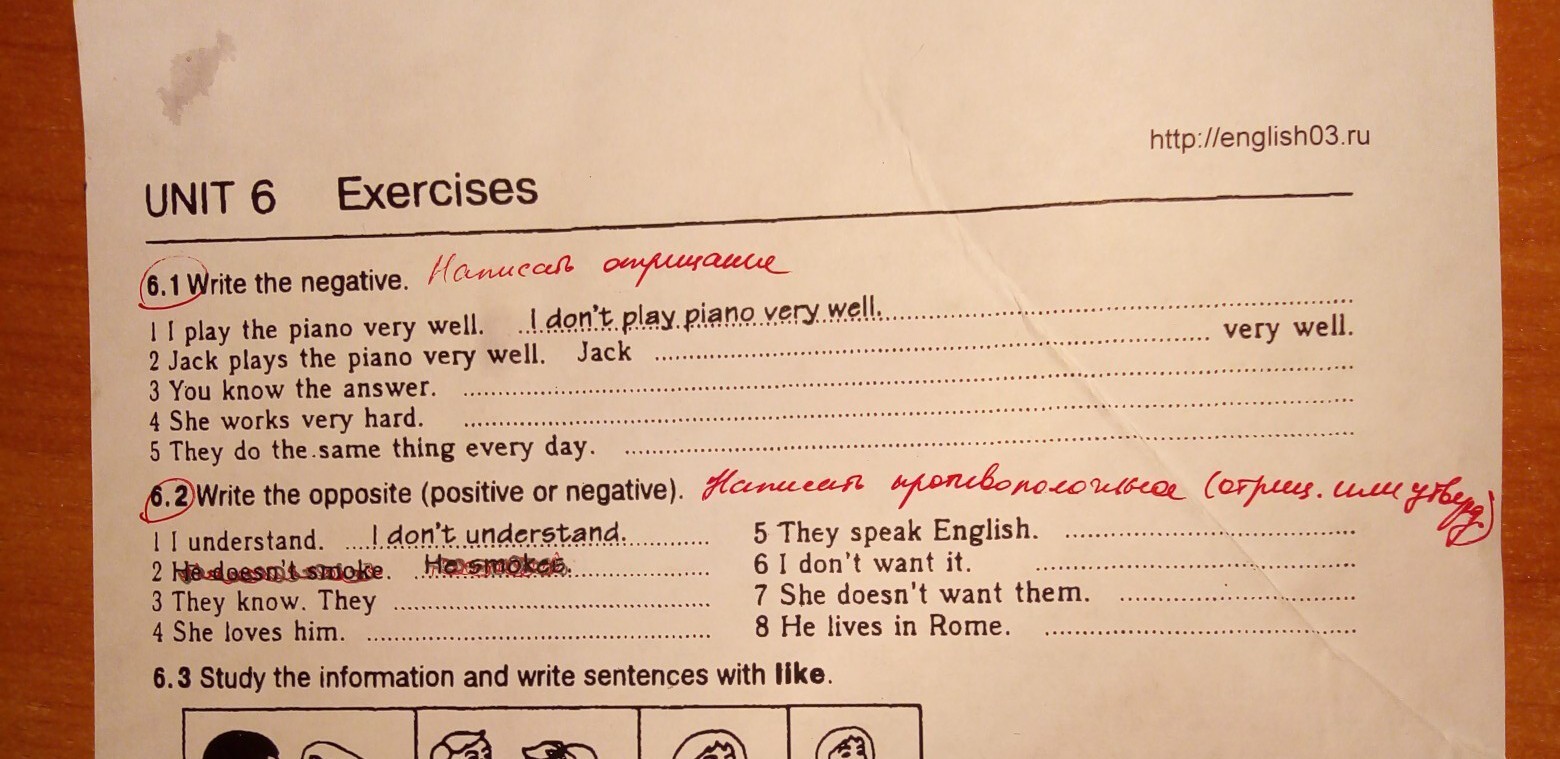 http://english03.ru
UNIT 6 Exercises
6.1 Write the negative. Написать отрицание
1 I play the piano very well. I don't play piano very well.
2 Jack plays the piano very well. Jack ........ very well.
3 You know the answer. ........
4 She works very hard. ........
5 They do the same thing every day. ........
6.2 Write the opposite (positive or negative). Написать противоположное (отриц. или утверд.)
1 I understand. I don't understand.
2 He doesn't smoke. He smokes.
3 They know. They ........
4 She loves him. ........
5 They speak English. ........
6 I don't want it. ........
7 She doesn't want them. ........
8 He lives in Rome. ........
6.3 Study the information and write sentences with like.